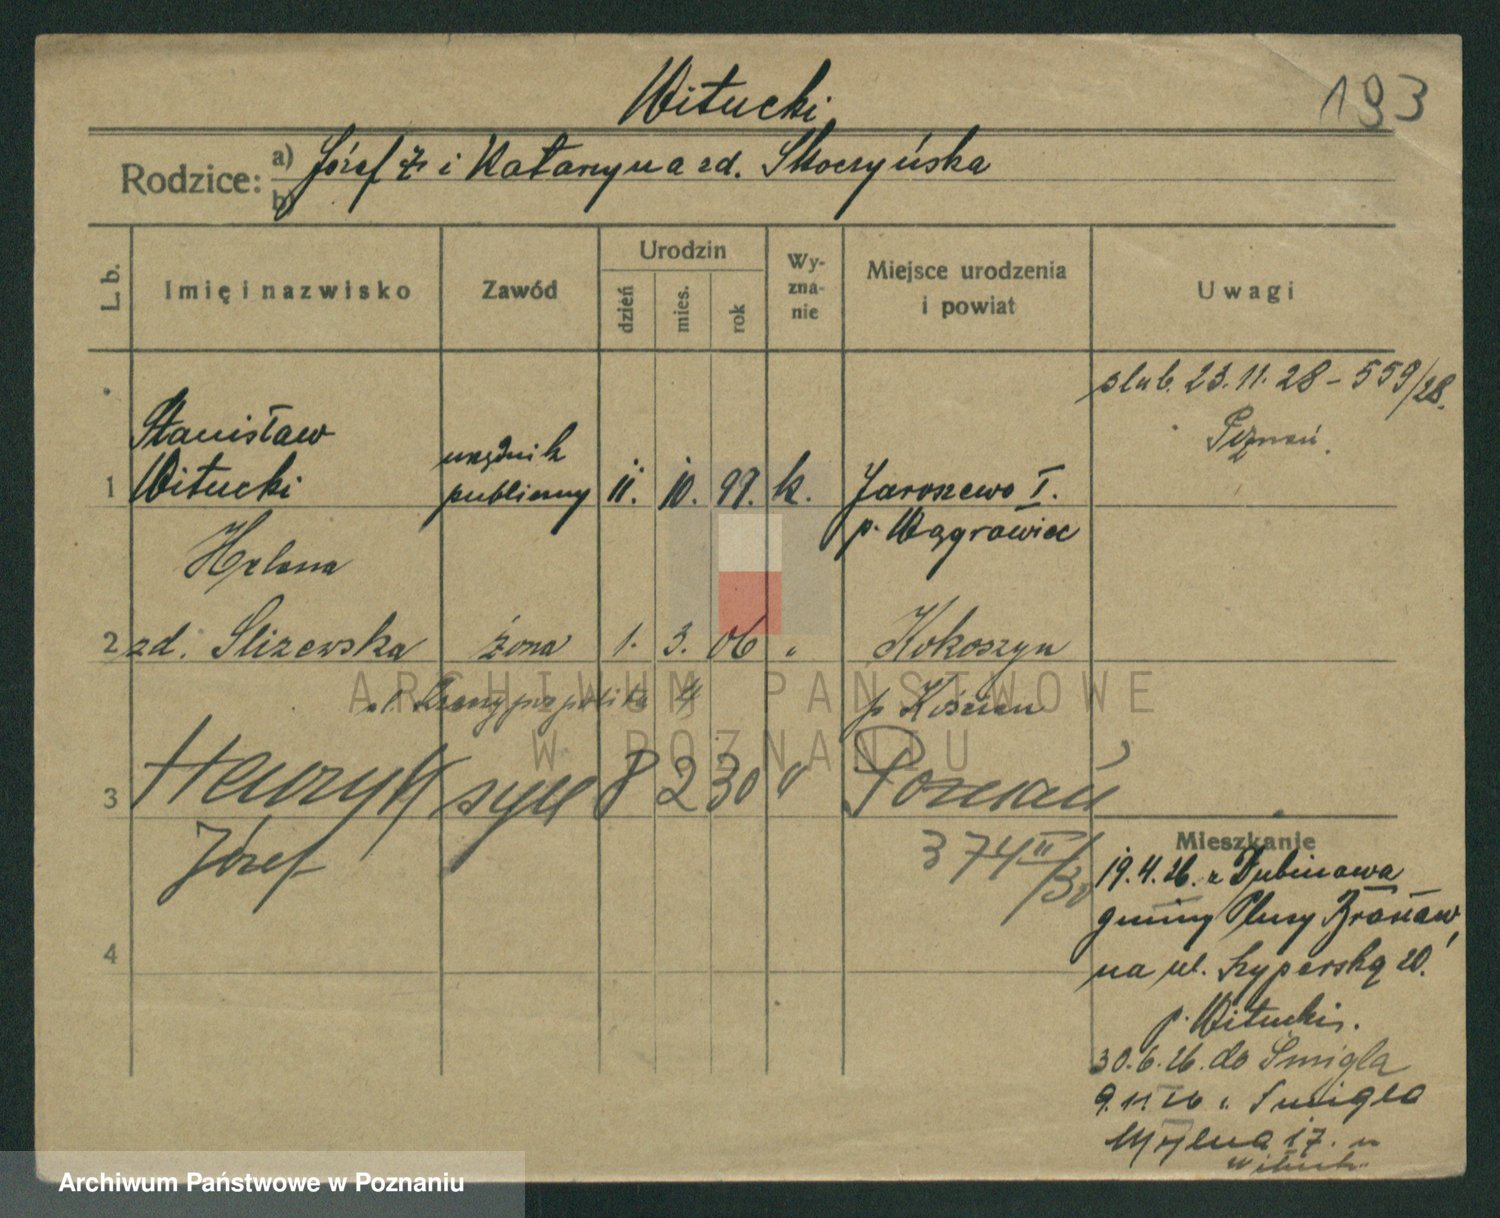 Witucki
193
Rodzice:
a) Józef ż. i Katarzyna zd. Skoczyńska
b)
L. b.
Imię i nazwisko
Zawód
Urodzin
dzień
mies.
rok
Wy-
zna-
nie
Miejsce urodzenia
i powiat
Uwagi
ślub. 23.11.28 – 559/28.
Poznań.
Stanisław
urzędnik
1 Witucki publiczny 11. 10. 99. k. Jaroszewo I.
p. Wągrowiec
Helena
2 zd. Slizewska żona 1. 3. 06 " Kokoszyn
p. Kościan
3 Henryk syn 8 2 30 " Poznań
Józef
374 II/30
4
Mieszkanie
19.4.26. z Dubinowa
gminy Plusy Brasław,
na ul. Szyperską 20.
p. Wituckim.
30.6.26. do Śmigla
9.11.26 z Śmigla
Mylna 17. u
ARCHIWUM PAŃSTWOWE
W POZNANIU
Archiwum Państwowe w Poznaniu